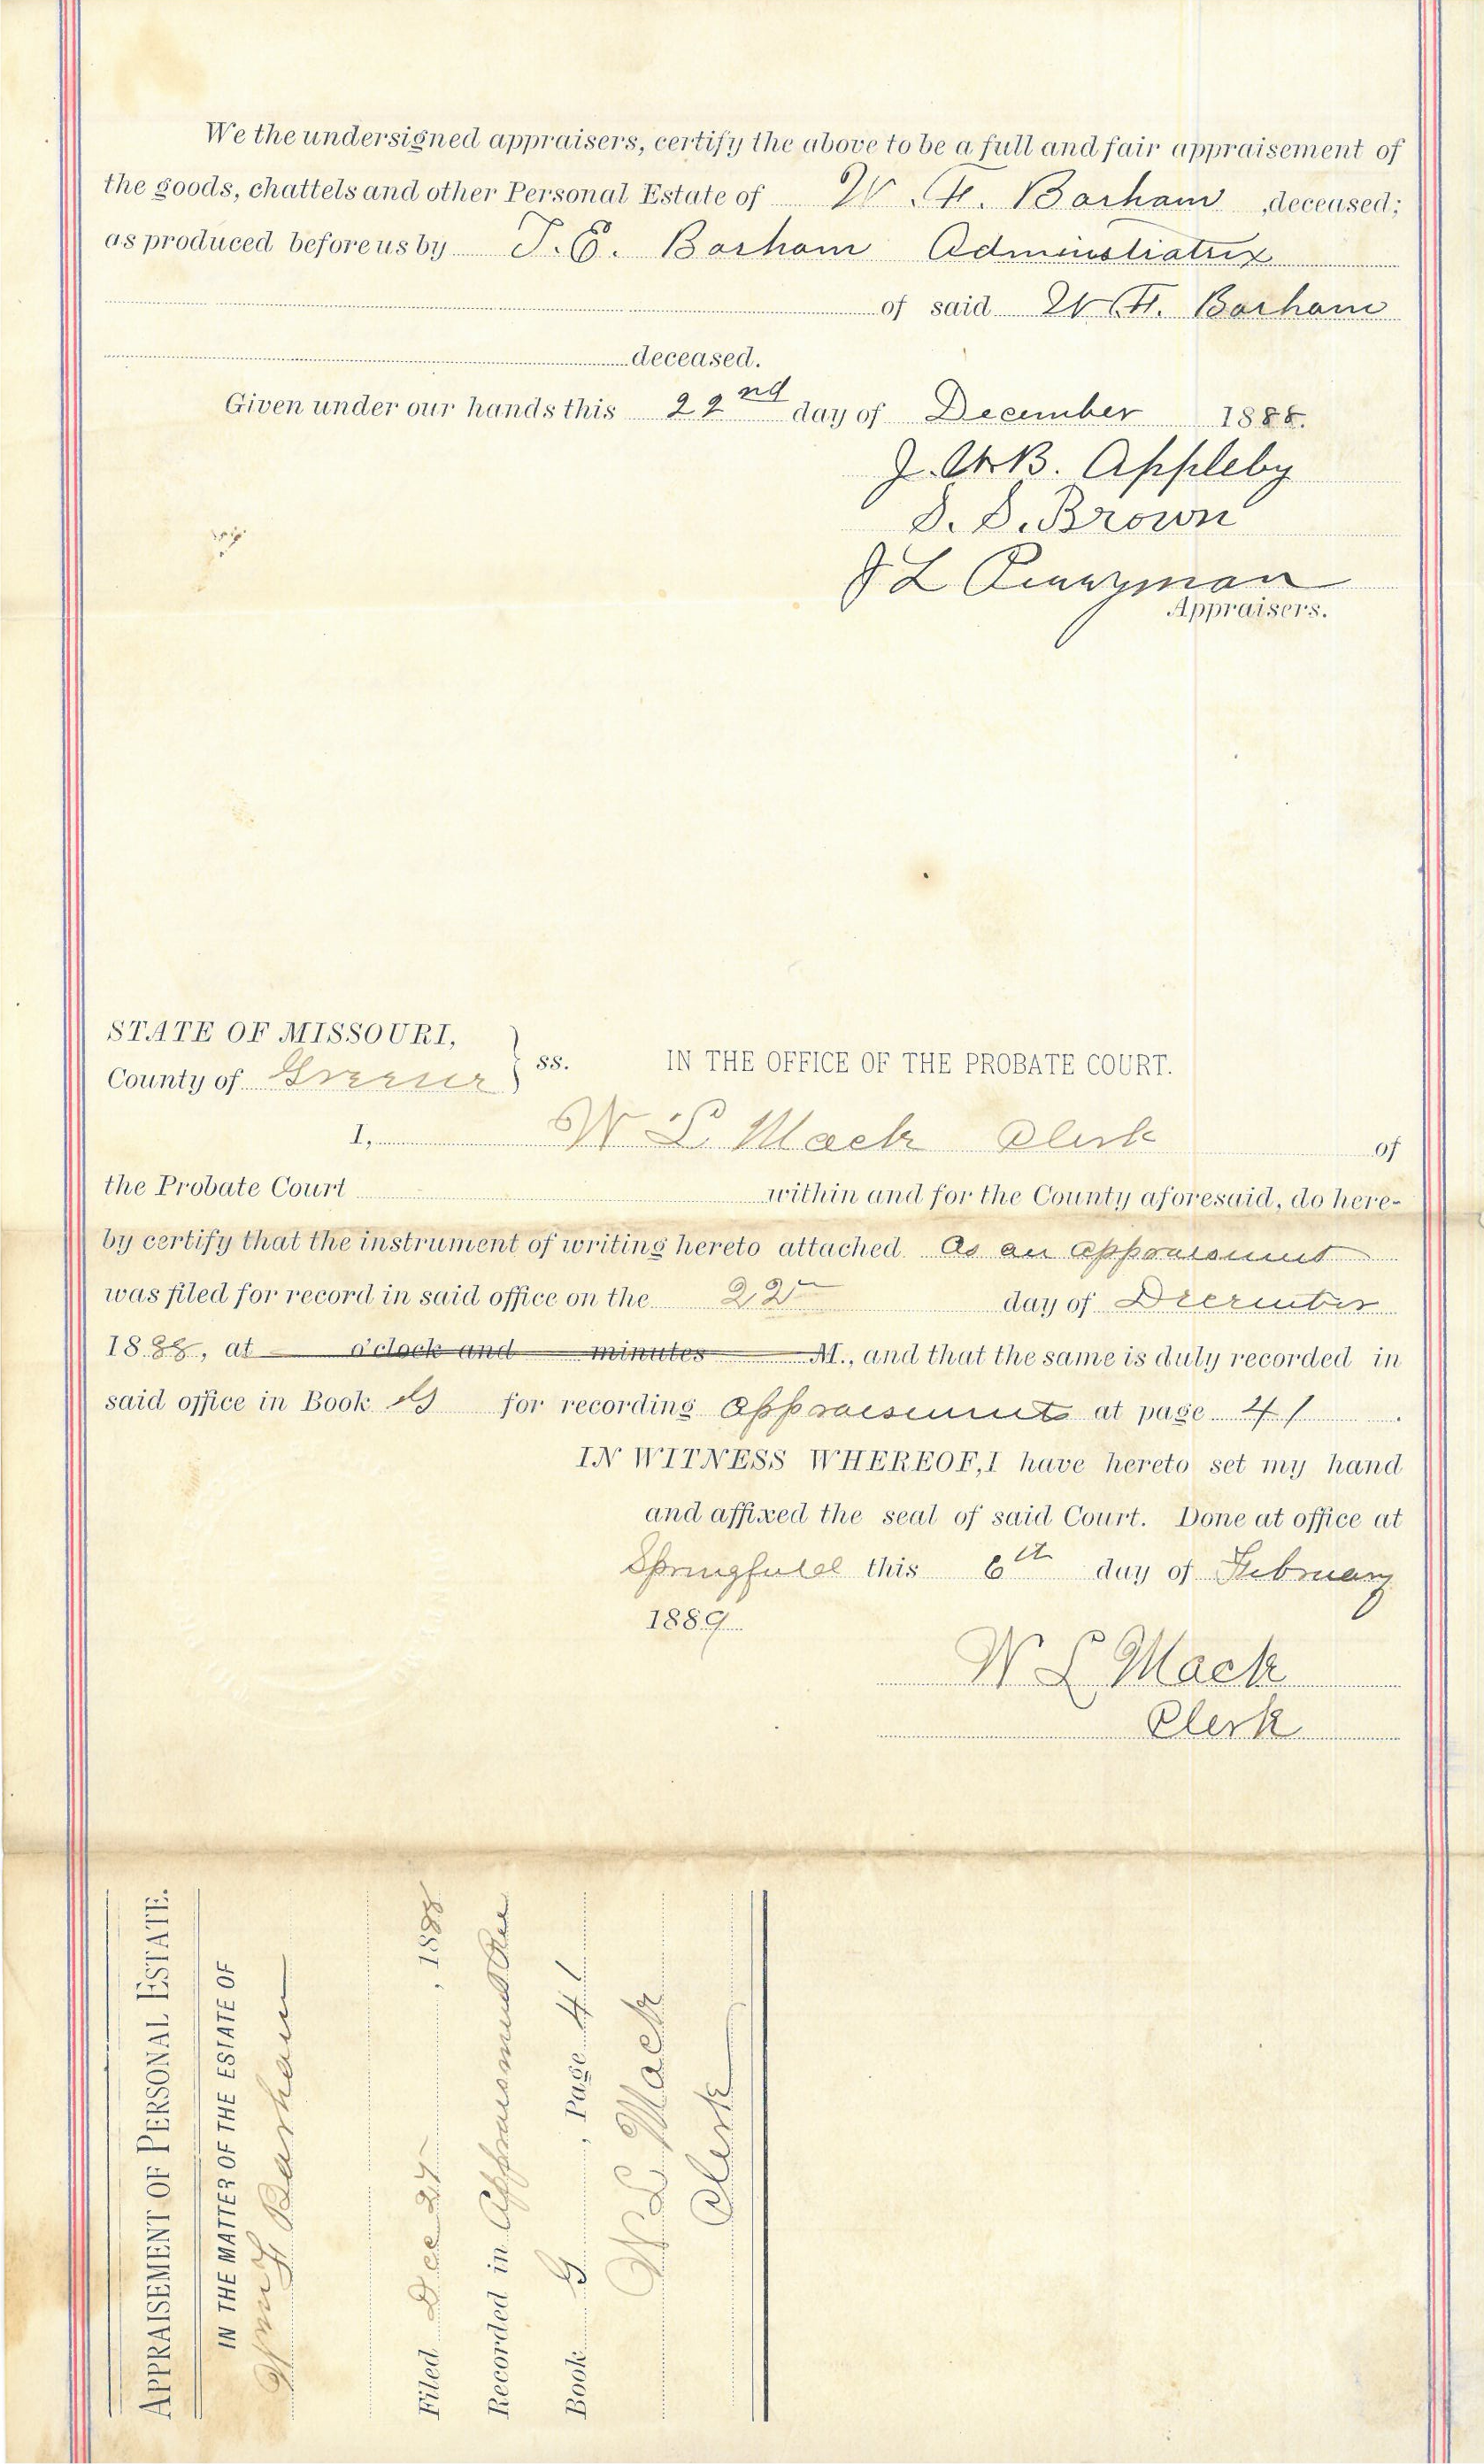 We the undersigned appraisers, certify the above to be a full and fair appraisement of
the goods, chattels and other Personal Estate of W. F. Barham, deceased;
as produced before us by T. E. Barham Adminstratrix
of said W. F. Barham
deceased.
Given under our hands this 22nd day of December 1888.
J. W. B. Appleby
S. S. Brown
J L Perryman
Appraisers.
STATE OF MISSOURI,
County of Greene } ss. IN THE OFFICE OF THE PROBATE COURT.
I, W L Mack Clerk of
the Probate Court within and for the County aforesaid, do here-
by certify that the instrument of writing hereto attached As an appraisement
was filed for record in said office on the 22 day of December
1888, at o'clock and minutes M., and that the same is duly recorded in
said office in Book G for recording appraisements at page 41.
IN WITNESS WHEREOF, I have hereto set my hand
and affixed the seal of said Court. Done at office at
Springfield this 6th day of February
1889
W L Mack
Clerk
APPRAISEMENT OF PERSONAL ESTATE.
IN THE MATTER OF THE ESTATE OF
Wm F Barham
Filed Dec 27, 1888
Recorded in Appraisement Rec
Book G, Page 41
W L Mack
Clerk